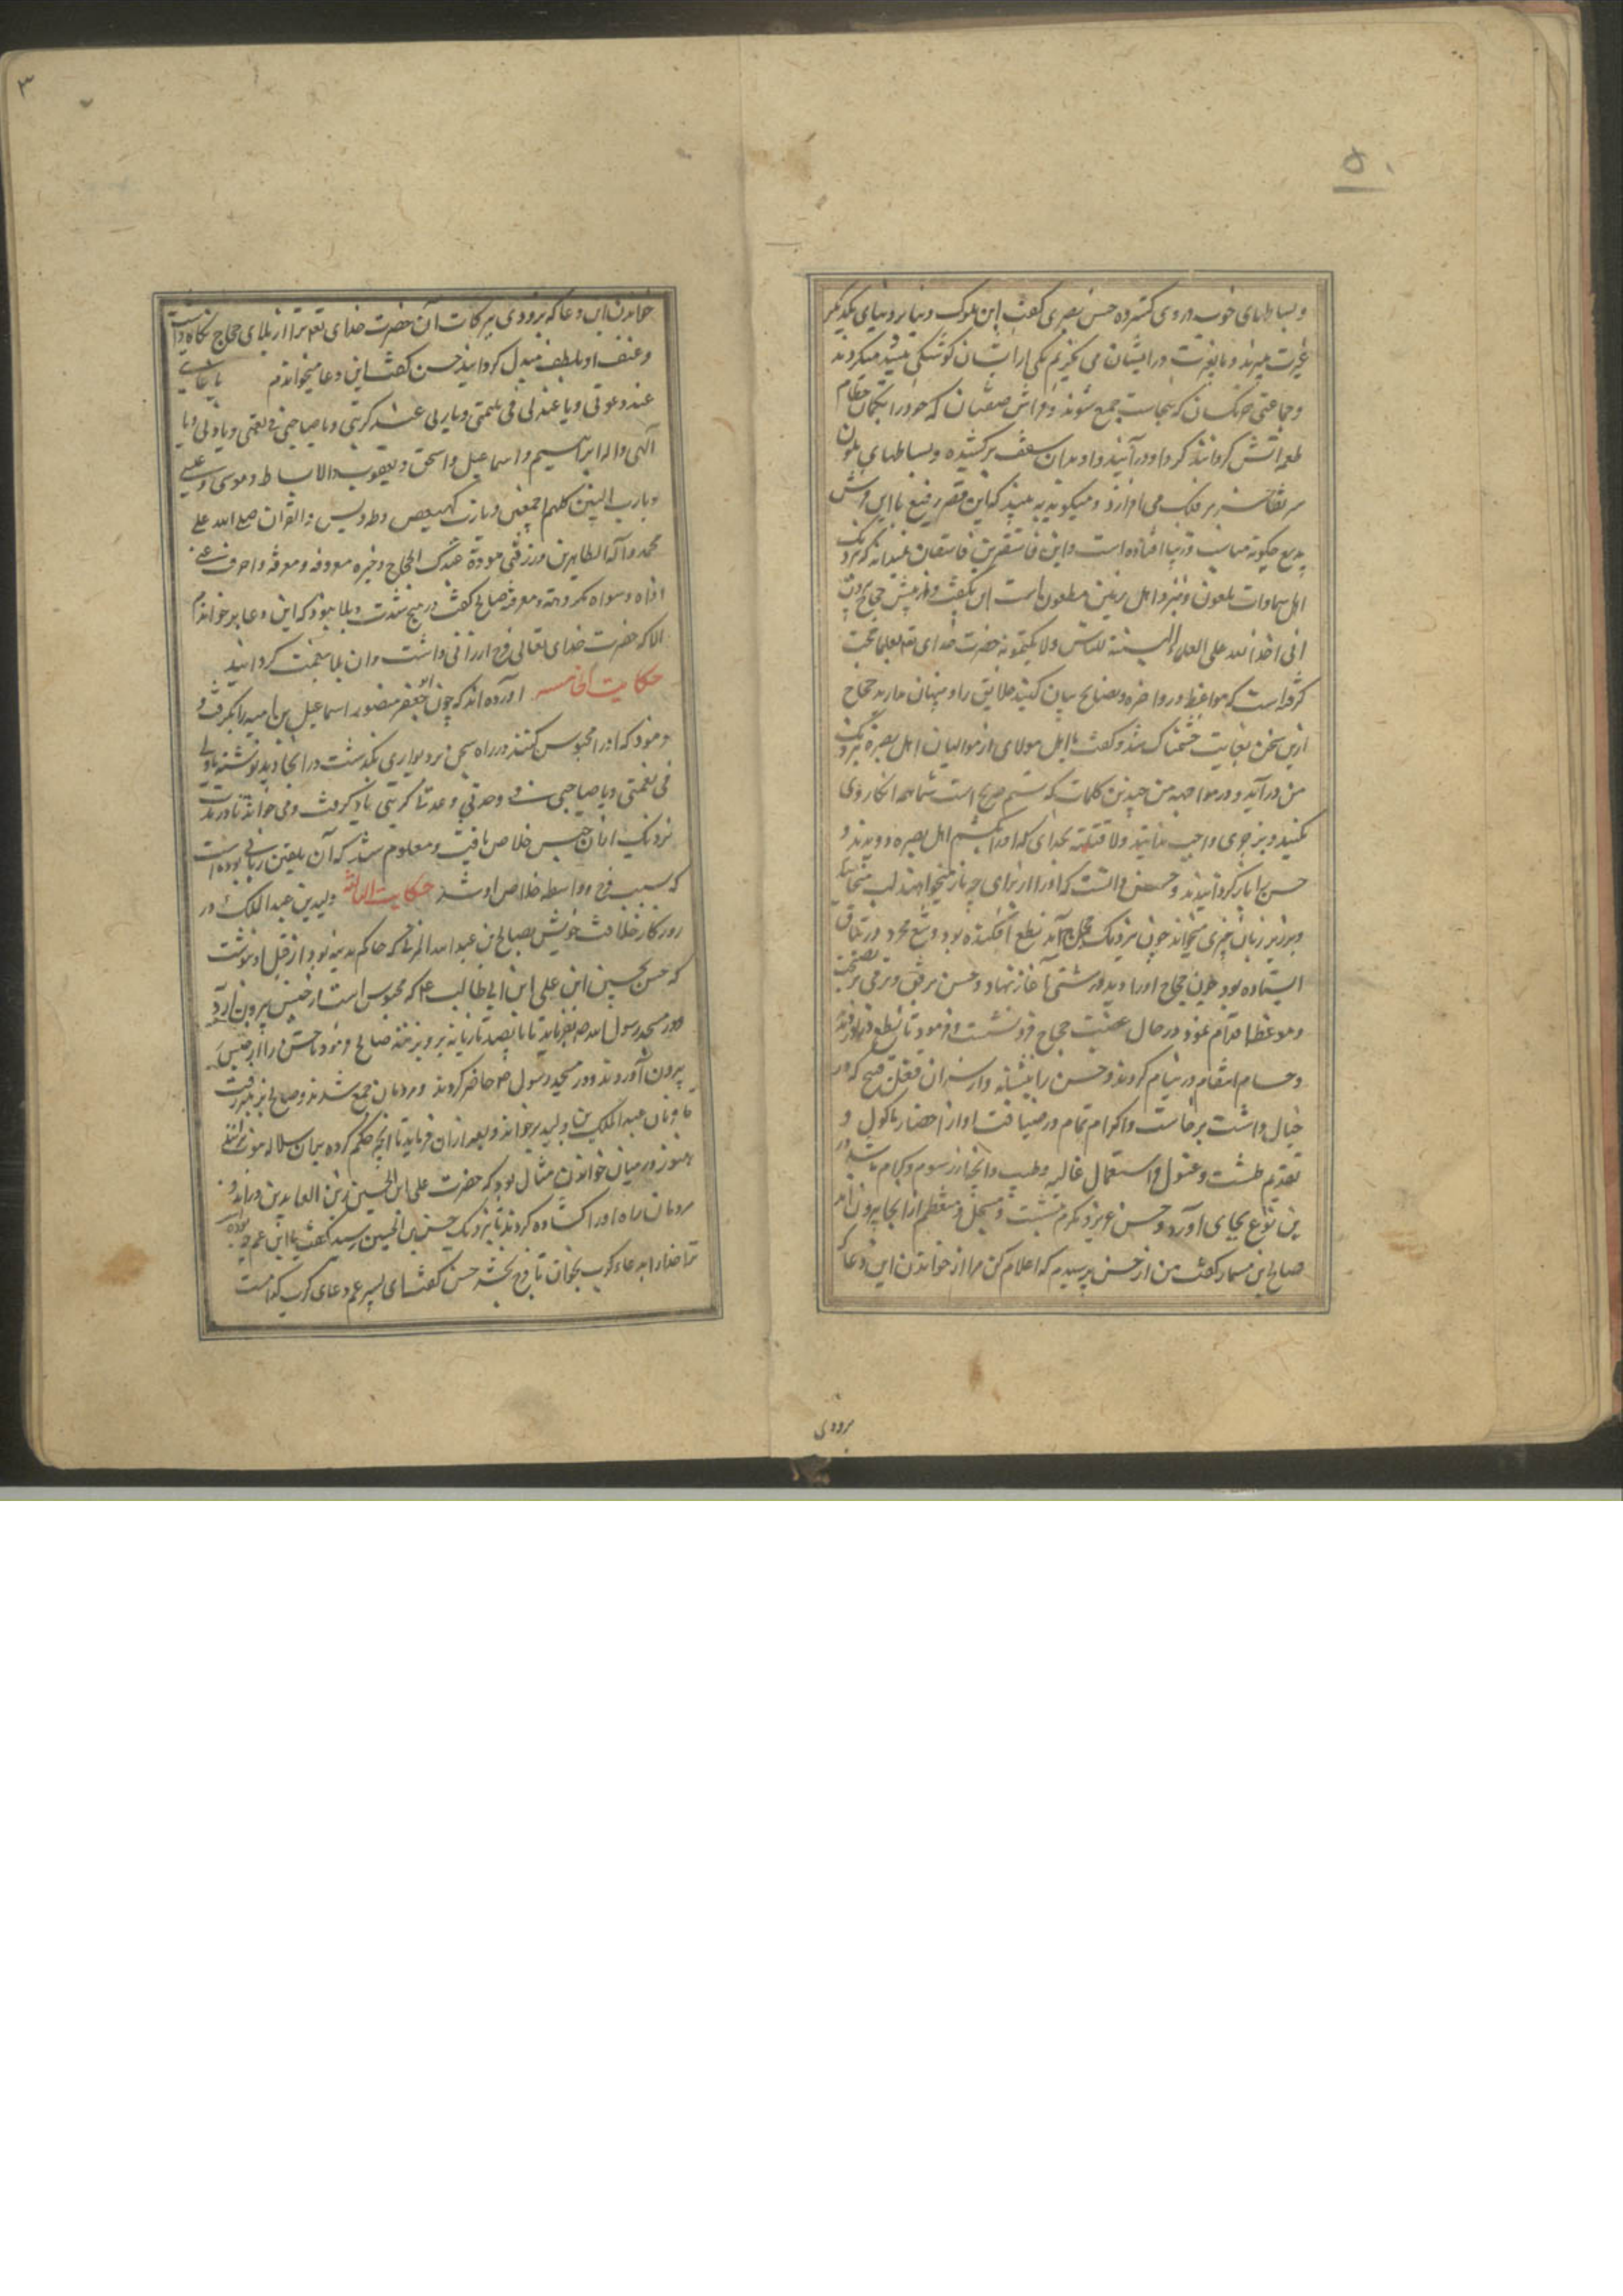 ۵۰
و بساطهای خوب در وی گسترده حسن بصری گفت این ملوک دنیا بر دنیای یکدیگر
غیرت میبرند و ما بغیرت در ایشان می نگریم یکی از ایشان کوشکی مشید میکردند
و جماعتی مکسان که بنجاست جمع شوند و فراش صفتان که خود را بکمان
طعمه آتش گردانند گرد او در آیند و او بدان سقف برکشیده و بساطهای ملون
سر تفاخر بر فلک می افرازد و میگوید به بینید که این قصر رفیع با این فرش
بدیع چگونه مناسب و زیبا افتاده است و این فاسقترین فاسقان نمیداند که نزدیک
اهل سماوات ملعون و نزد اهل زمین مطعون است این بگفت و از پیش حجاج بیرون
انی اخذ الله علی العلماء لیبیننه للناس و لا یکتمونه حضرت خدای تعالی بعلما حجت
گرفته است که مواعظ و زواجر و نصایح بیان کنند خلایق را و پنهان ندارند حجاج
ازین سخن بغایت خشمناک شد و گفت یا اهل مولای از موالیان اهل بصره نزدیک
من در آید و در مواجهه من چنین کلمات که ستم صریح است شما همه انکار وی
نکنید و بزجر وی واجب ندانید و لاقتلنه بخدای که او را بکشم اهل بصره دویدند و
حسن را باز گردانیدند و حسن دانست که او را از برای چه باز میخواهند لب میجنبانید
و در زیر زبان چیزی میخواند چون نزدیک حجاج آمد نطع افکنده بود و تیغ مجرد در
ایستاده بود چون حجاج او را دید درشتی آغاز نهاد و حسن برفق و نرمی نصیحت
و موعظه اقدام نمود در حال غضب حجاج فرو نشست و فرمود تا نطع
و حسام انتقام در نیام کردند و حسن را بنشانند و از سر آن فعل قبیح که در
خیال داشت برخاست و اکرام تمام در ضیافت او از احضار ماکول و
تقدیم طشت و غسول و استعمال غالیه و طیب و انجاز رسوم و کرام باشد در
این نوع بجای آورد و حسن عزیز و مکرم بنشست و مبجل و معظم از آنجا بیرون آمد
صالح بن مسمار گفت من از حسن پرسیدم که اعلام کن مرا از خواندن این دعا که
بزودی
۳
خواندن این دعا که بزودی ببرکات آن حضرت خدای تعالی ترا از بلای حجاج نگاه داشت
و عنف او بلطف مبدل گردانید حسن گفت این دعا میخواندم یا غیاثی
عند دعوتی و یا عدتی فی ملمتی و یا ربی عند کربتی و یا صاحبی فی نعمتی و یا ولی و یا
الهی و اله ابراهیم و اسماعیل و اسحق و یعقوب و الاسباط و موسی و عیسی
و یا رب النبیین کلهم اجمعین و یا رب کهیعص و طه و یس و القرآن صل الله علی
محمد و آله الطاهرین و ارزقنی مودة عبدک الحجاج و خیره معروفه و معرفه و اصرف عنی
اذاه و سواه مکروهه و معرفه صالح گفت در هیچ شدت و بلا نبود که این دعا بر خواندم
الا که حضرت خدای تعالی فرج ارزانی داشت و آن بلا بنعمت گردانید
حکایت الخامسه آورده اند که چون ابو جعفر منصور اسماعیل بن امیه را بگرفت و
فرمود که او را محبوس کنند در راه سجن بر دیواری بگذشت در آنجا دید نوشته یا ولی
فی نعمتی و یا صاحبی فی وحدتی و عدتی کربتی یاد گرفت و می خواند تا در مدت
نزدیک از آن حبس خلاص یافت و معلوم شد که آن تلقین ربانی بوده است
که سبب فرج و واسطه خلاص او شد حکایت الثالثه ولید بن عبد الملک در
روزگار خلافت خویش بصالح بن عبد الله المزنی که حاکم مدینه بود از قبل او نوشت
که حسن بحسین ابن علی ابن ابی طالب ع که محبوس است از حبس بیرون آرد
و در مسجد رسول الله ص بفرماید تا پانصد تازیانه برو بزنند صالح فرمود تا حسن را از حبس
بیرون آوردند و در مسجد رسول ص حاضر کردند و مردمان جمع شدند و صالح بر منبر رفت
تا فرمان عبد الملک بن ولید بر خواند و بعد از آن فرماید تا آنچه حکم کرده بران سلاله
هنوز در میان خواندن مثال بود که حضرت علی ابن الحسین زین العابدین در آمد و
مردمان راه او را گشاده کردند تا بنزدیک حسن بن الحسین رسید گفت یا ابن عم چه بوده است
ترا خدا را بدعاء کرب بخوان تا فرج بخشد حسن گفت ای پسر عم دعای کرب کدامست